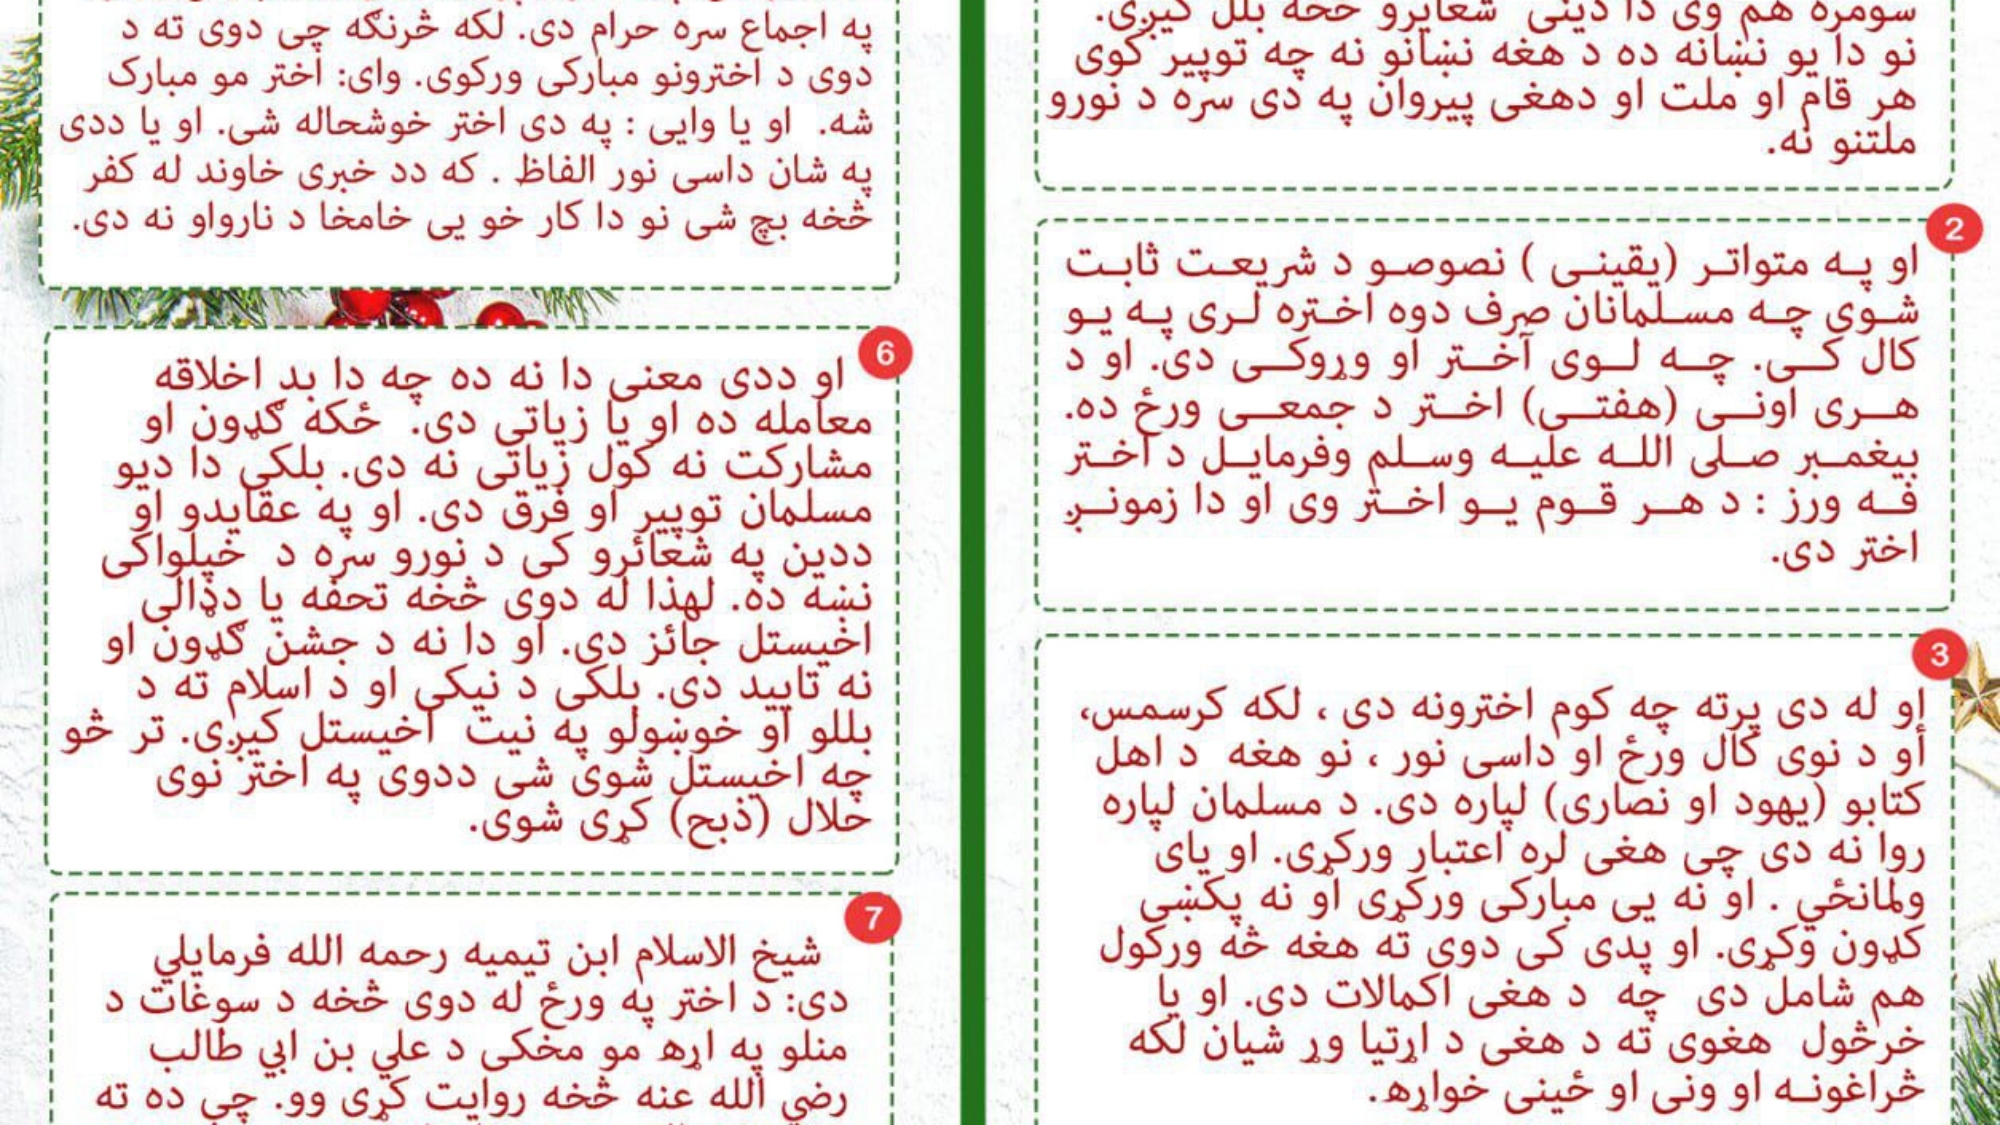 سومره هم وی دا دینی شعایرو څخه بلل کیږی.
نو دا یو نښانه ده د هغه نښانو نه چه توپیر کوی
هر قام او ملت او دهغی پیروان په دی سره د نورو
ملتنو نه.
2
او په متواتر (یقینی ) نصوصو د شریعت ثابت
شوی چه مسلمانان صرف دوه اختره لری په یو
کال کی. چه لوی آختر او وړوکی دی. او د
هری اونی (هفتی) اختر د جمعی ورځ ده.
پیغمبر صلی الله علیه وسلم وفرمایل د اختر
فه ورز : د هر قوم یو اختر وی او دا زمونږ
اختر دی.
3
او له دی پرته چه کوم اخترونه دی ، لکه کرسمس،
او د نوی کال ورځ او داسی نور ، نو هغه د اهل
کتابو (یهود او نصاری) لپاره دی. د مسلمان لپاره
روا نه دی چی هغی لره اعتبار ورکړی. او یای
ولمانځي . او نه یی مبارکی ورکړی او نه پکښی
کډون وکړی. او پدی کی دوی ته هغه څه ورکول
هم شامل دی چه د هغی اکمالات دی. او یا
خرڅول هغوی ته د هغی د اړتیا وړ شیان لکه
څراغونه او ونی او ځینی خواړه.
په اجماع سره حرام دی. لکه څرنګه چی دوی ته د
دوی د اخترونو مبارکی ورکوی. وای: اختر مو مبارک
شه. او یا وایی : په دی اختر خوشحاله شی. او یا ددی
په شان داسی نور الفاظ . که دد خبری خاوند له کفر
څخه بچ شی نو دا کار خو یی خامخا د نارواو نه دی.
6
او ددی معنی دا نه ده چه دا بد اخلاقه
معامله ده او یا زیاتی دی. ځکه ګډون او
مشارکت نه کول زیاتی نه دی. بلکی دا دیو
مسلمان توپیر او فرق دی. او په عقایدو او
ددین په شعائرو کی د نورو سره د خپلواکی
نښه ده. لهذا له دوی څخه تحفه یا دډالی
اخیستل جائز دی. او دا نه د جشن ګډون او
نه تایید دی. بلکی د نیکی او د اسلام ته د
بللو او خوښولو په نیت اخیستل کیږی. تر څو
چه اخیستل شوی شی ددوی په اختر نوی
حلال (ذبح) کړی شوی.
7
شیخ الاسلام ابن تیمیه رحمه الله فرمایلي
دی: د اختر په ورځ له دوی څخه د سوغات د
منلو په اړه مو مخکی د علي بن ابي طالب
رضي الله عنه څخه روایت کړی وو. چی ده ته